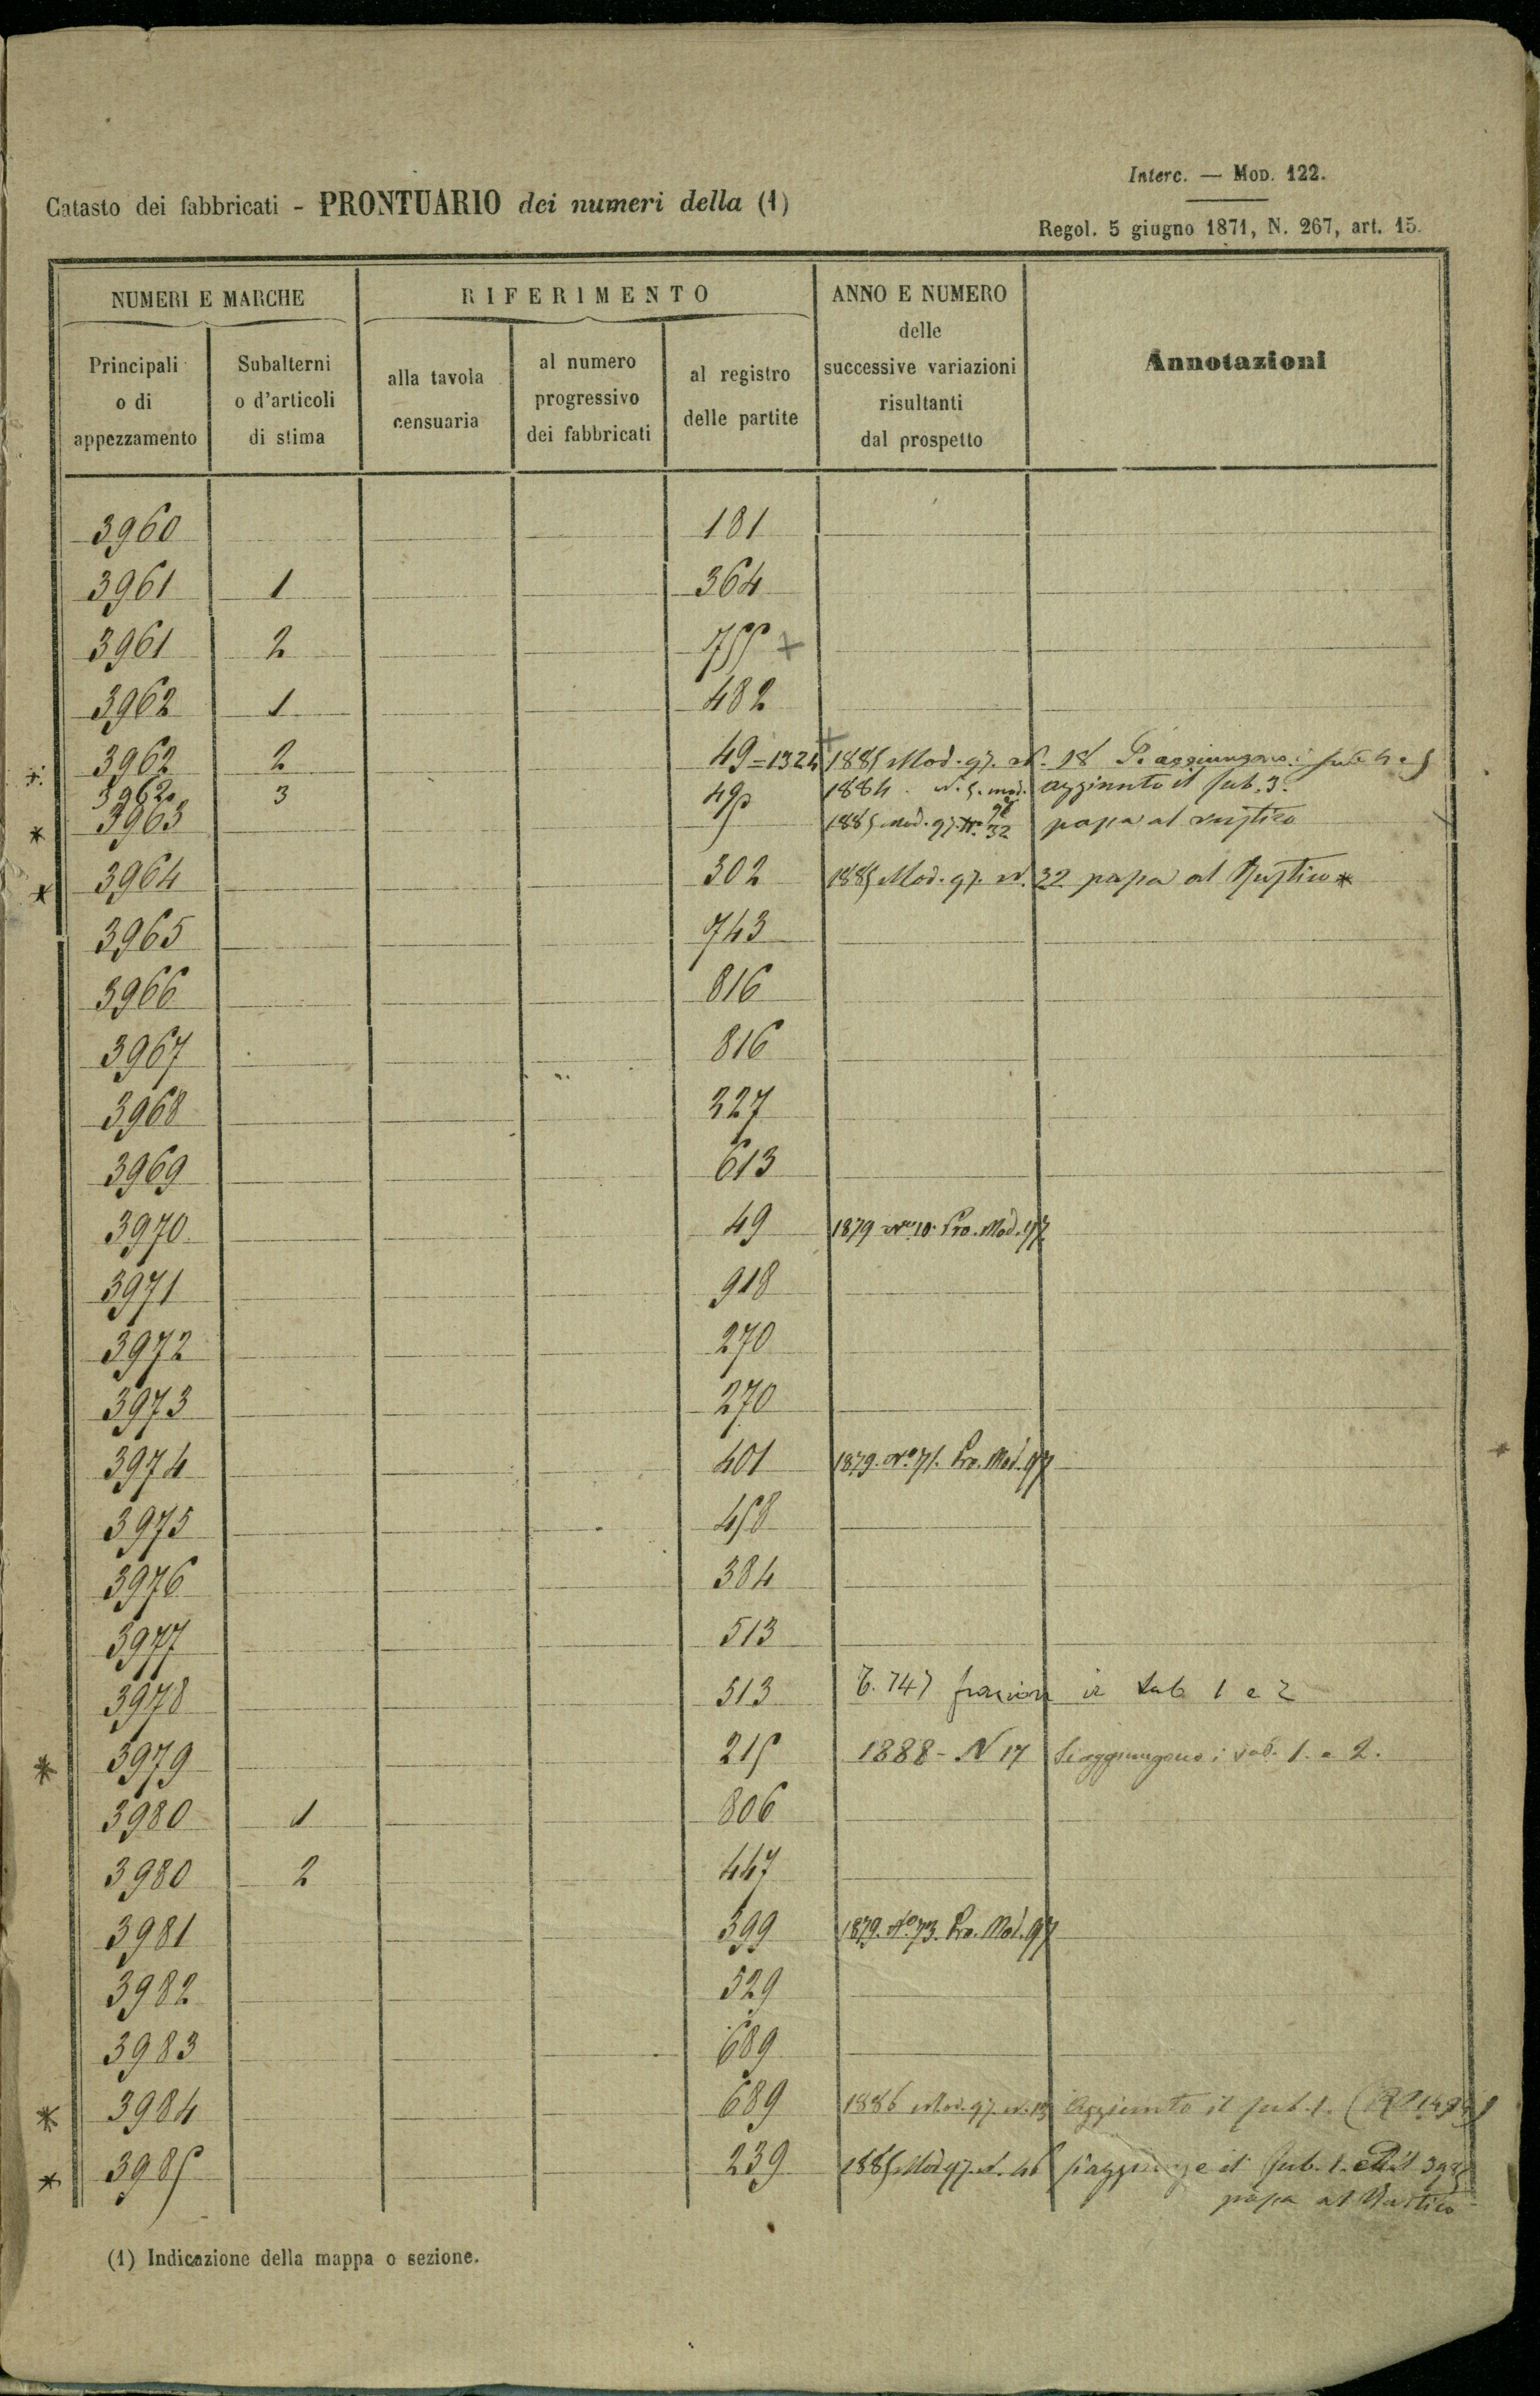 Interc. — MOD. 122.
Catasto dei fabbricati - PRONTUARIO dei numeri della (1)
Regol. 5 giugno 1871, N. 267, art. 15.
NUMERI E MARCHE
RIFERIMENTO
ANNO E NUMERO delle successive variazioni risultanti dal prospetto
Annotazioni
Principali o di appezzamento
Subalterni o d'articoli di stima
alla tavola censuaria
al numero progressivo dei fabbricati
al registro delle partite
3960 181
3961 1 364
3961 2 755 +
3962 1 482
3962 2 49=1324 + 1885 Mod. 97. N. 18 Si aggiungono i sub 4 e 5
3962 3 1884 N. 5. mod. 97 aggiunto il sub. 3.
* 3963 495 1885 Mod. 97. N. 32 passa al rustico
* 3964 302 1885 Mod. 97. N. 32 passa al Rustico *
3965 743
3966 816
3967 816
3968 327
3969 613
3970 49 1879 No 10. Pro. Mod. 97
3971 918
3972 270
3973 270
3974 401 1879. No 71. Pro. Mod. 97
3975 458
3976 384
3977 513
3978 513 747 in Sub 1 e 2
* 3979 215 1888 - N 17 Si aggiungono i sub. 1. e 2.
3980 1 806
3980 2 447
3981 399 1879. No 73. Pro. Mod. 97
3982 529
3983 689
* 3984 689 1886 Mod. 97. N. 13 Aggiunto il sub. 1.
* 3985 239 1885 Mod 97. N. 46 si aggiunge il sub. 1.
passa al Rustico
(1) Indicazione della mappa o sezione.